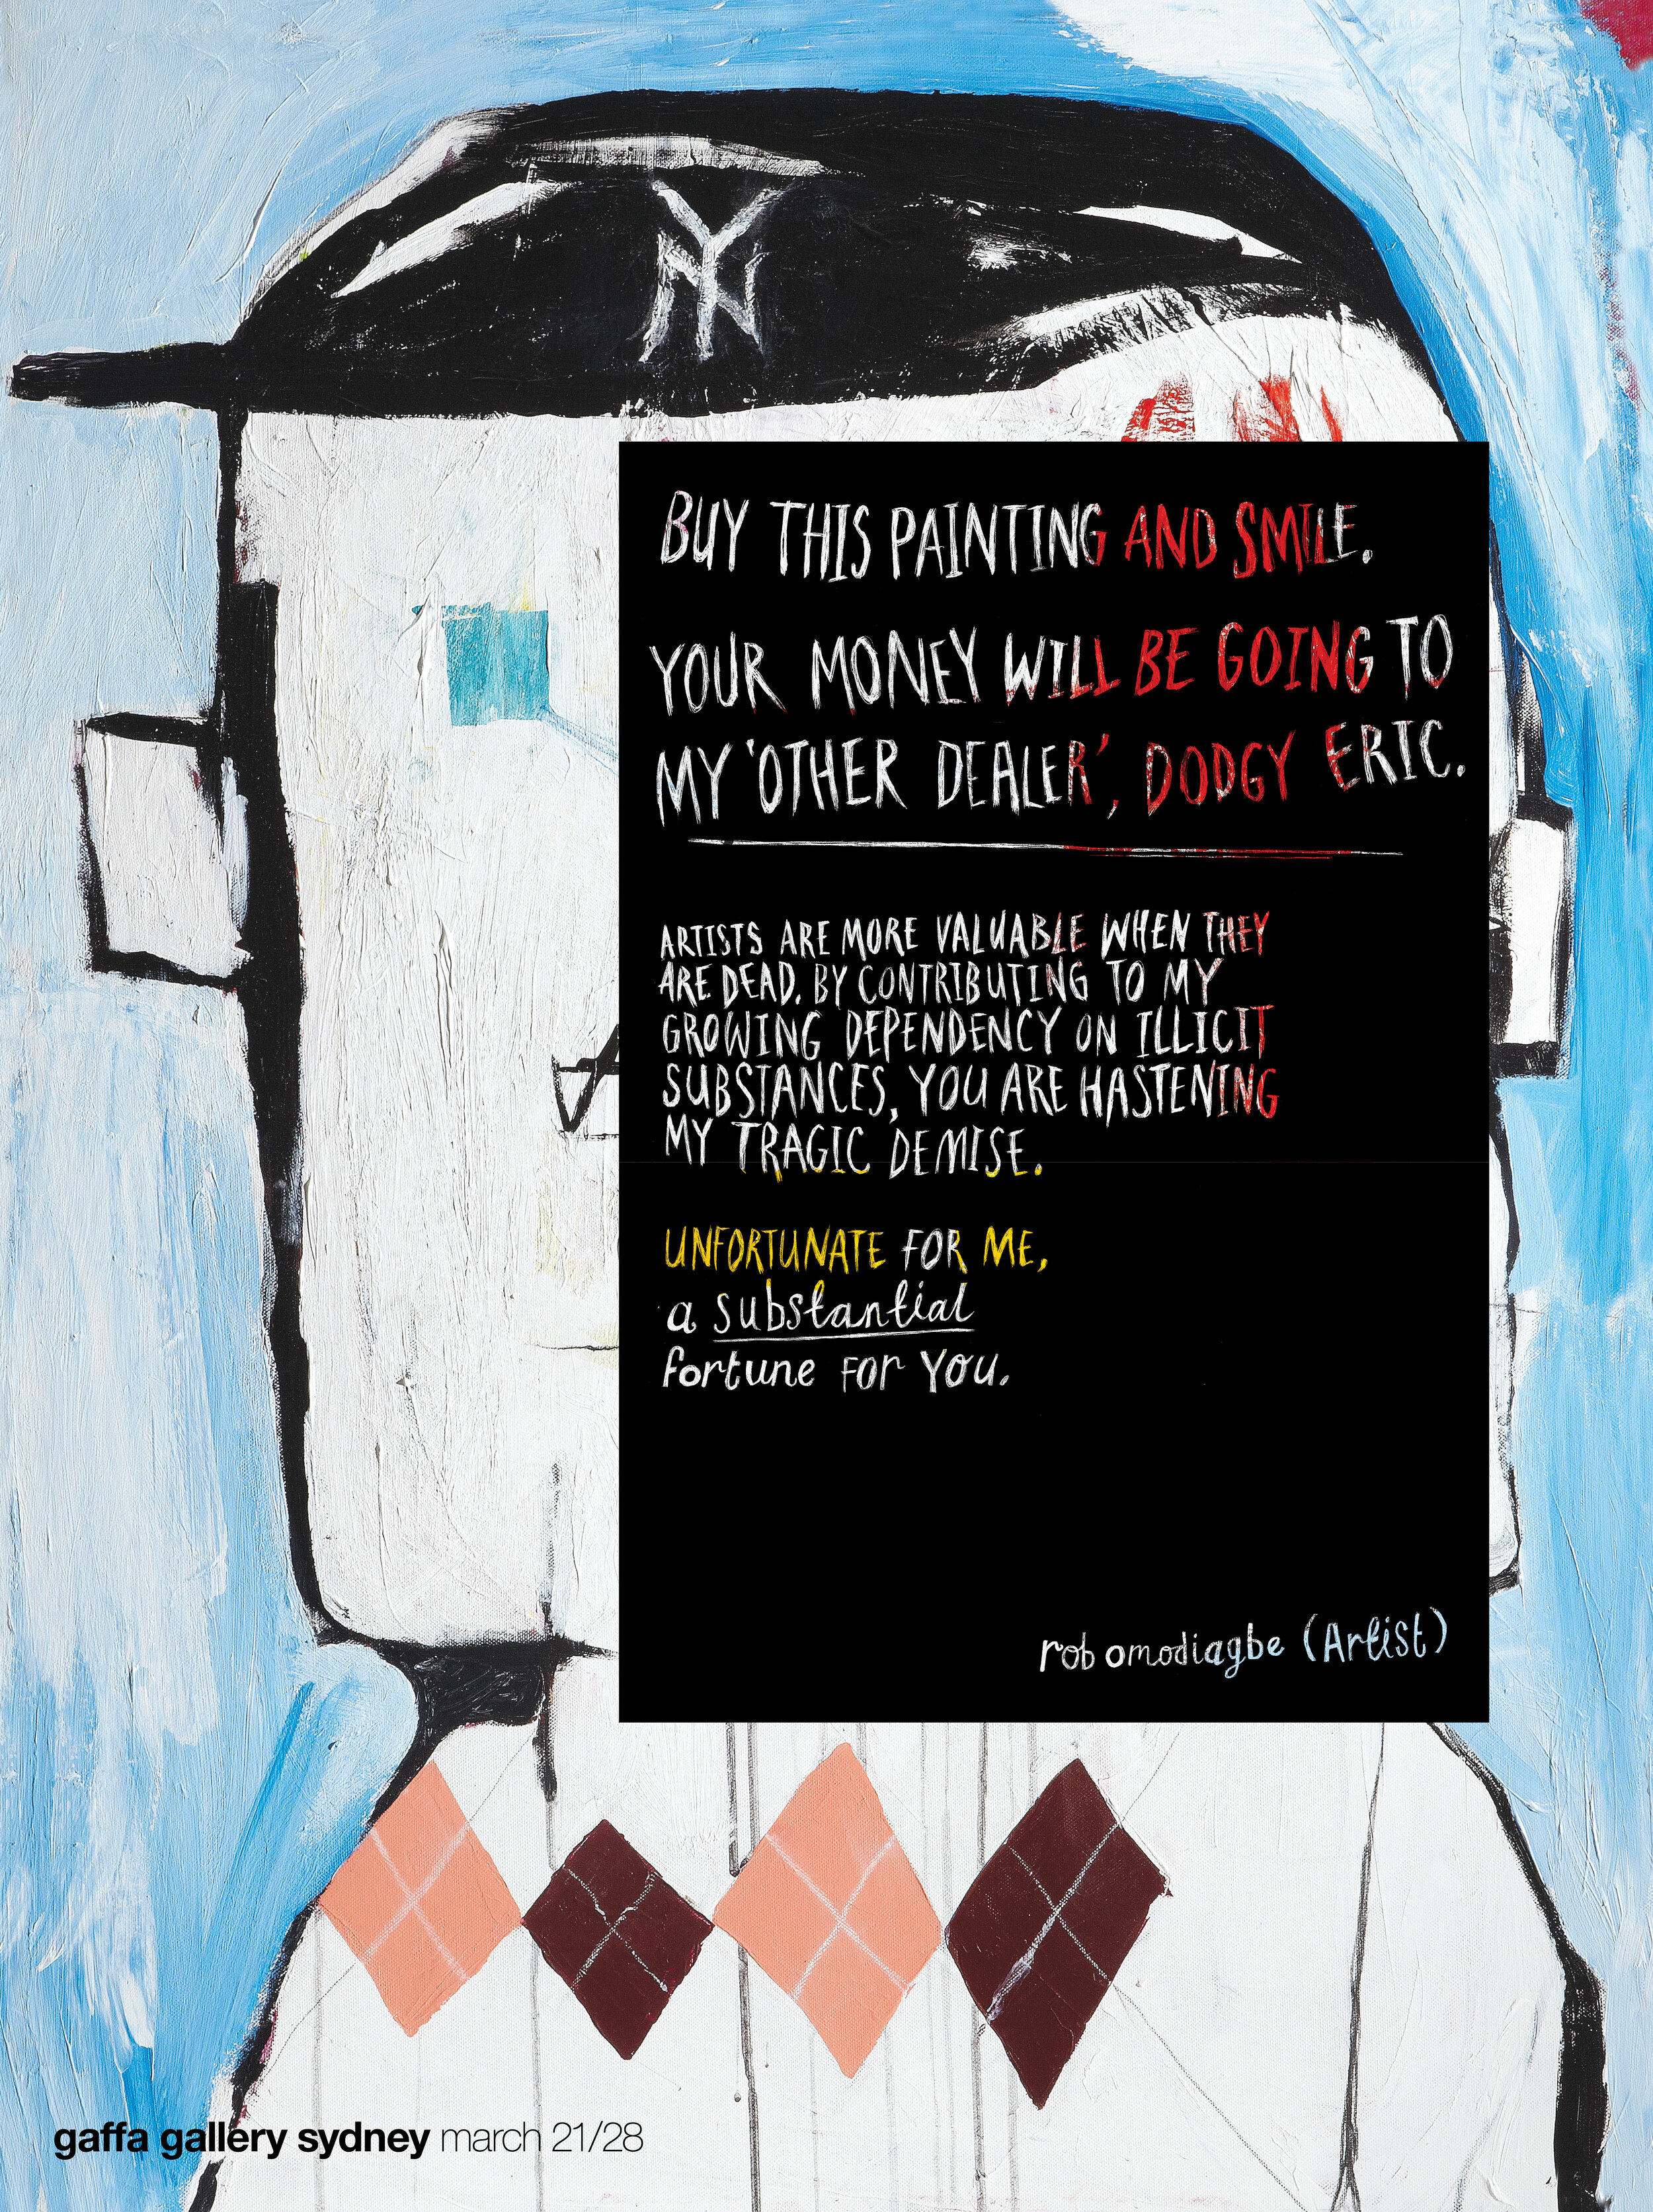 NY
BUY THIS PAINTING AND SMILE.
YOUR MONEY WILL BE GOING TO
MY 'OTHER DEALER', DODGY ERIC.
ARTISTS ARE MORE VALUABLE WHEN THEY
ARE DEAD. BY CONTRIBUTING TO MY
GROWING DEPENDENCY ON ILLICIT
SUBSTANCES, YOU ARE HASTENING
MY TRAGIC DEMISE.
UNFORTUNATE FOR ME,
a substantial
fortune FOR YOU.
rob omodiagbe (Artist)
gaffa gallery sydney march 21/28